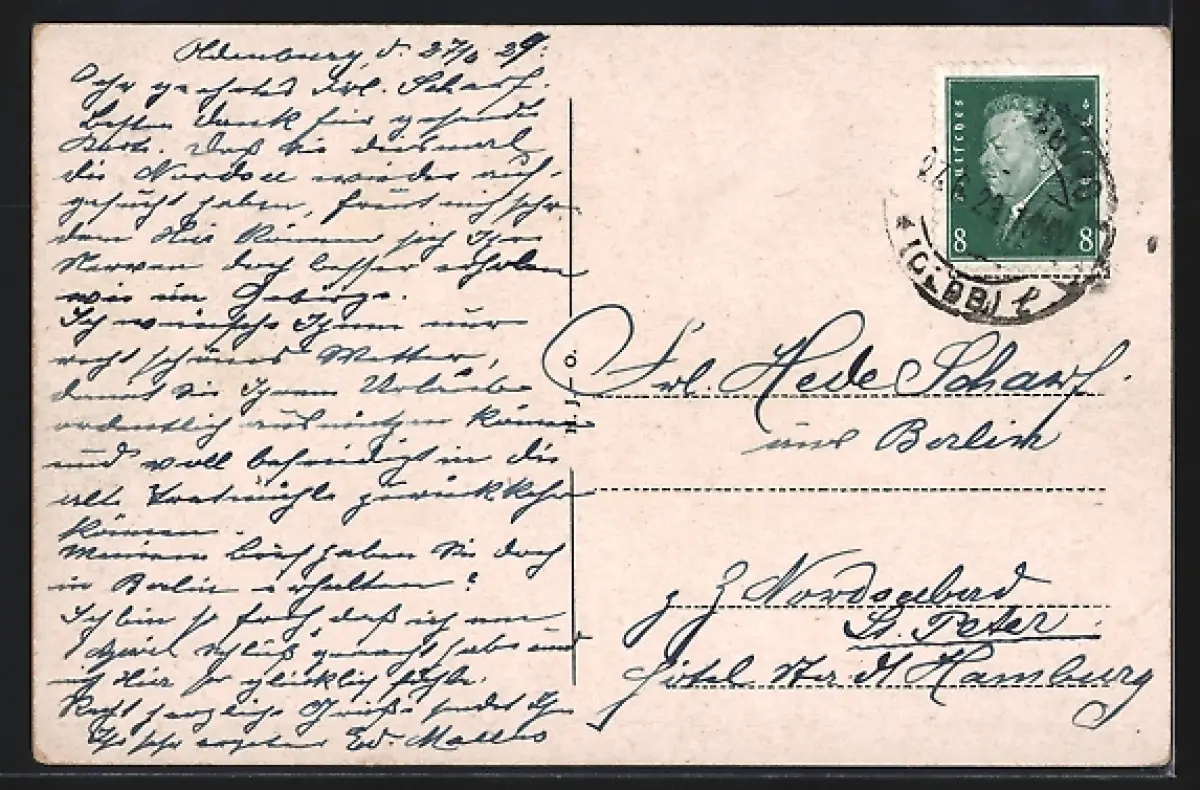 Oldenburg, d. 27/6 29.
Sehr geehrtes Frl. Scharf.
Besten Dank für gesandte
Karte. Daß Sie diesmal
die Nordsee wieder auf-
gesucht haben, freut mich sehr
denn hier können sich Ihre
Nerven doch besser erholen
wie im Gebirge.
Ich wünsche Ihnen nur
recht schönes Wetter,
damit Sie Ihren Urlaub
ordentlich ausnützen können
und voll befriedigt in die
alte zurückkehren
können.
Meinen Brief haben Sie doch
in Berlin erhalten?
Ich bin so froh, daß ich am
1 April Schluß gemacht habe und
mich hier so glücklich fühle.
Recht herzliche Grüße sendet Ihnen
Ihr sehr ergebener Ed.
Deutsches Reich
8 8
Frl. Hede Scharf.
aus Berlin
z Z Nordseebad
St. Peter.
Hotel Stadt Hamburg